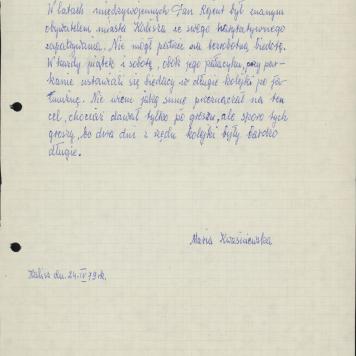 W latach międzywojennych Pan Rejent był znanym
obywatelem miasta Kalisza ze swego charytatywnego
zapatrywania. Nie mógł patrzeć na bezrobotną biedotę.
W każdy piątek i sobotę, obok jego pałacyku, przy par-
kanie ustawiali się biedacy w długie kolejki po jał-
mużnę. Nie wiem jaką sumę przeznaczał na ten
cel, chociaż dawał tylko po groszu, ale sporo tych
groszy, bo dwa dni z rzędu kolejki były bardzo
długie.
Maria Kwaśniewska
Kalisz dn. 24.IV.79 r.